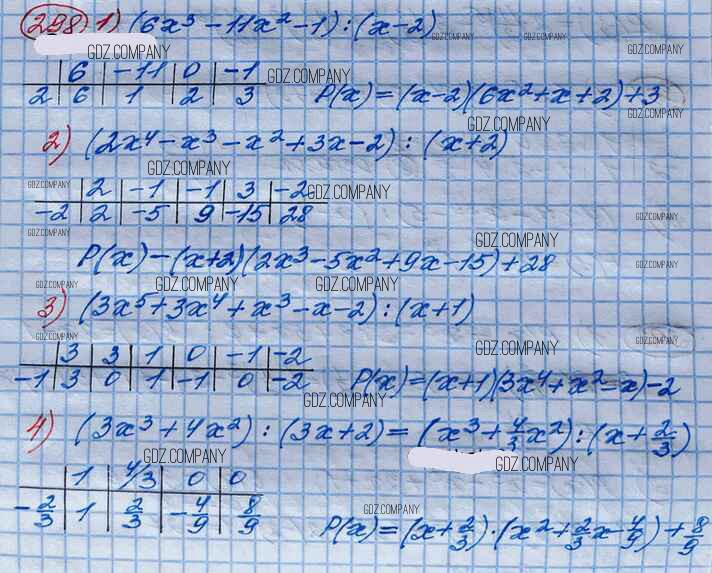 298 1) (6x³ - 11x² - 1) : (x - 2)
GDZ.COMPANY GDZ.COMPANY GDZ.COMPANY GDZ.COMPANY
6 | -11 | 0 | -1 GDZ.COMPANY
2 | 6 | 1 | 2 | 3 P(x) = (x-2)(6x²+x+2)+3
GDZ.COMPANY GDZ.COMPANY
2) (2x⁴ - x³ - x² + 3x - 2) : (x+2)
GDZ.COMPANY
GDZ.COMPANY 2 | -1 | -1 | 3 | -2 GDZ.COMPANY
-2 | 2 | -5 | 9 | -15 | 28 GDZ.COMPANY
GDZ.COMPANY GDZ.COMPANY
P(x) - (x+2)(2x³ - 5x² + 9x - 15) + 28 GDZ.COMPANY
GDZ.COMPANY GDZ.COMPANY
3) (3x⁵ + 3x⁴ + x³ - x - 2) : (x+1)
GDZ.COMPANY GDZ.COMPANY GDZ.COMPANY
3 | 3 | 1 | 0 | -1 | -2
-1 | 3 | 0 | 1 | -1 | 0 | -2 P(x) = (x+1)(3x⁴ + x² - x) - 2
GDZ.COMPANY
4) (3x³ + 4x²) : (3x+2) = (x³ + 4/3 x²) : (x + 2/3)
GDZ.COMPANY GDZ.COMPANY
1 | 4/3 | 0 | 0
-2/3 | 1 | 2/3 | -4/9 | 8/9
GDZ.COMPANY GDZ.COMPANY
P(x) = (x + 2/3) · (x² + 2/3 x - 4/9) + 8/9